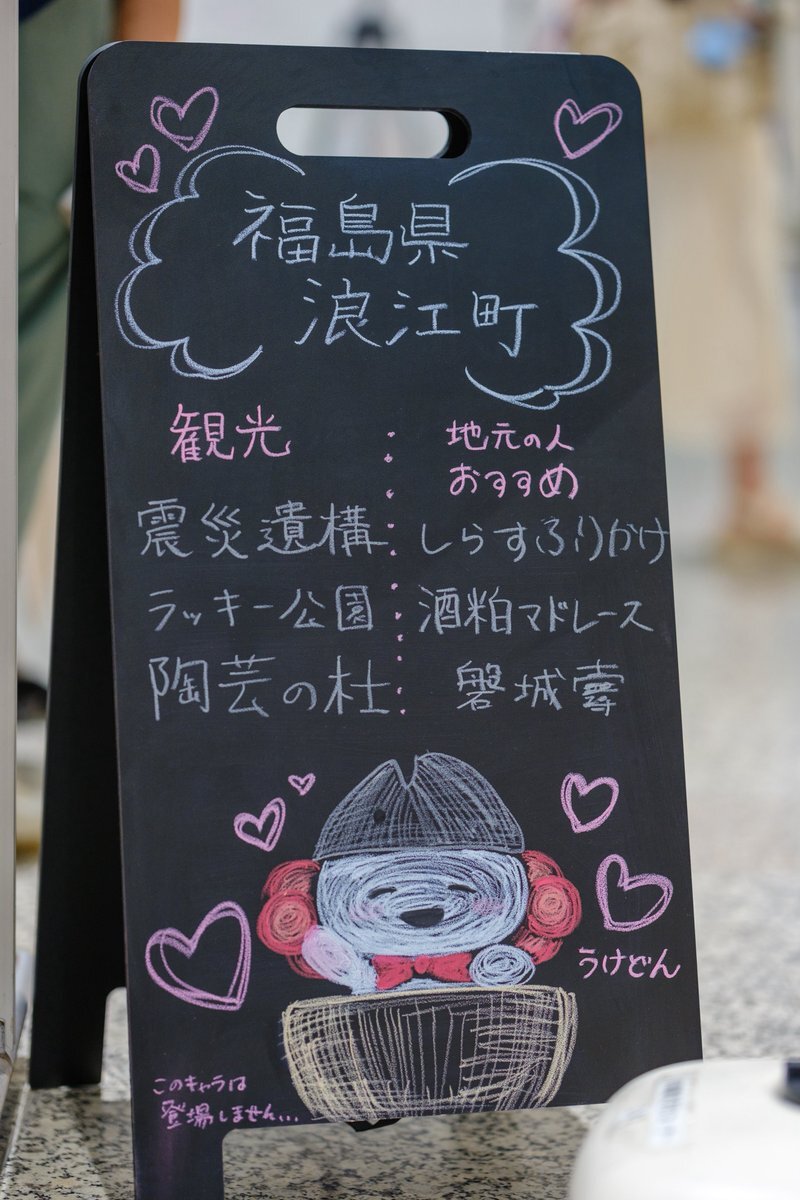 福島県
浪江町
観光
震災遺構
ラッキー公園
陶芸の杜
地元の人
おすすめ
しらすふりかけ
酒粕マドレース
磐城壽
うけどん
このキャラは
登場しません...